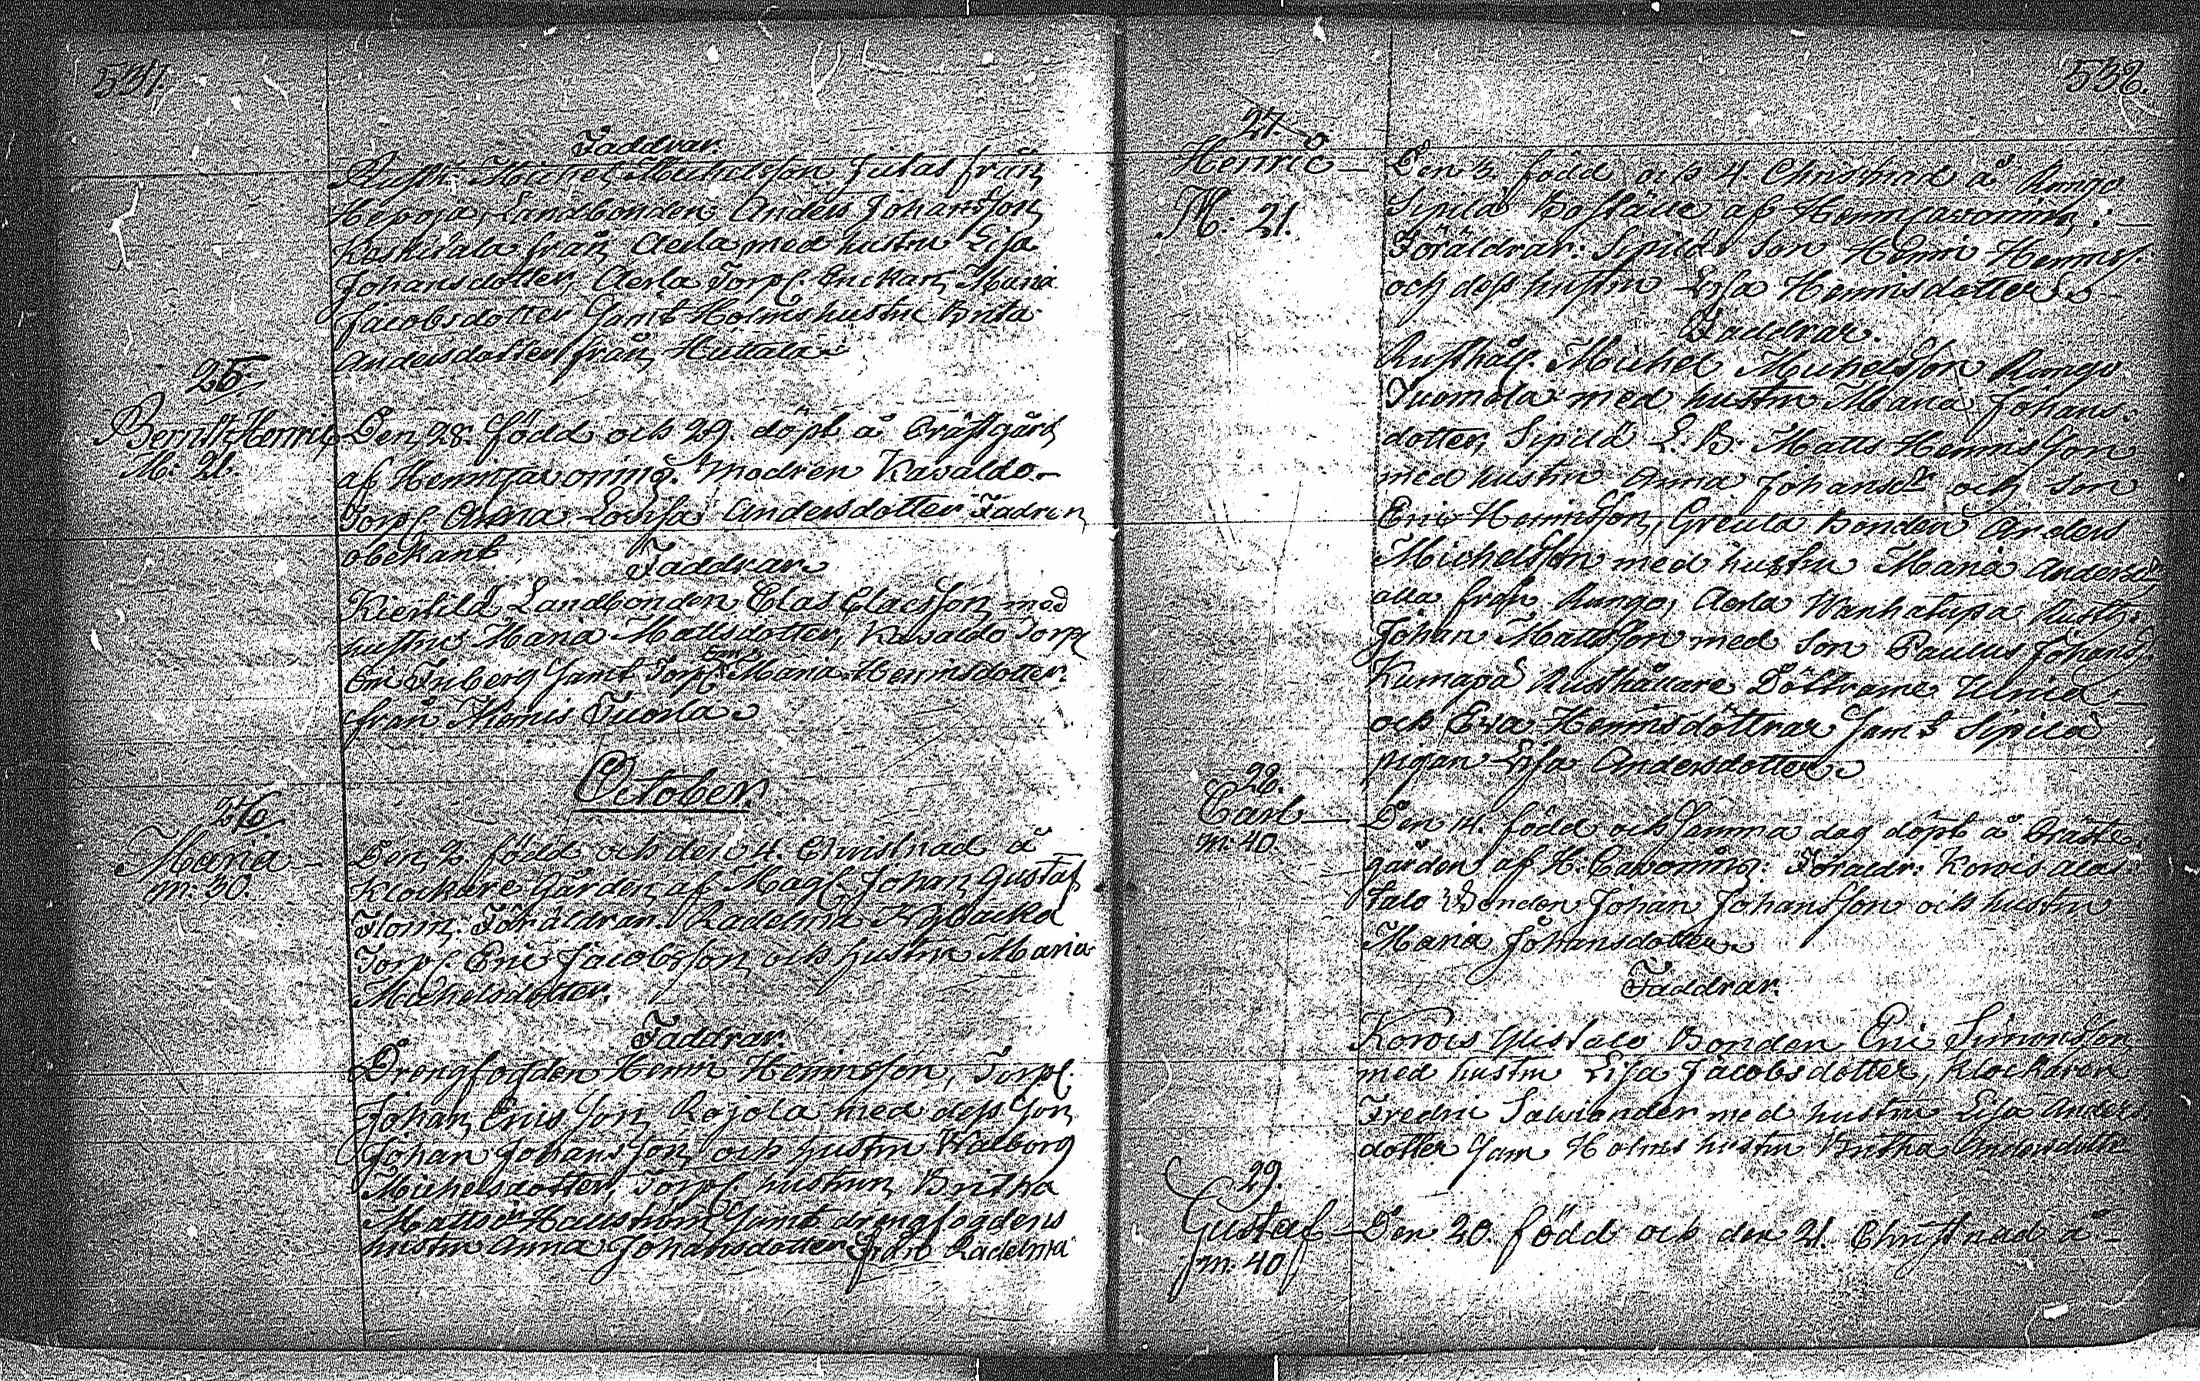 537.
Faddrar.
Rusth. Michel Michelsson Jutas från
Hepoja, Landbonden Anders Johansson
Koskitala från Aerla med hustru Lisa
Johansdotter, Aerla Torp. Enckarn Maria
Jacobsdotter Samt Holms hustru Brita
Andersdotter från Huttala
25.
Bernt Henric
M: 21.
Den 28. född och 29. döpt å Prästgård
af Henric Cavoning. modren Kavaldo
Torp. Anna Lovisa Andersdotter Fadren
obekant
Faddrar
Kierkilä Landbonden Clas Classon med
hustru Maria Mattsdotter, Kavaldo Torp.
Eric Friberg Samt Torp. Maria Henricsdotter
från Tuorla
October.
26.
Maria
m: 30.
Den 2. född och den 4. Christnad å
Klockare Gården af Mag. Johan Gustaf
Florin. Föräldrar. Radelma Kybacka
Torp. Eric Jacobsson och hustru Maria
Michelsdotter.
Faddrar.
Drengfogden Henric Henricsson, Torp.
Johan Ericsson Rojola med dess Son
Johan Johansson och hustru Walborg
Michelsdotter, Torp. hustrun Britha
Matts dr Hallström Samt drengfogdens
hustru Anna Johansdotter från Radelma
538.
27.
Henric
M: 21.
Den 3. född och 4. Christnad å Rungo
Sipilä Boställe af Henric Cavoning:
Föräldrar: Sipilä Son Henric Henrics.
och dess hustru Lisa Henricsdotter
Faddrar.
Rusthåll. Michel Michelsson Rungo
Tuomola med hustru Maria Johans-
dotter, Sipilä L. B. Matts Henricsson
med hustru Anna Johansdr och Son
Eric Henricsson, Greula Bonden Anders
Michelsson med hustru Maria Andersdr
alla från Rungo, Aerla Wanhatupa Rusth.
Johan Mattsson med Son Paulus Johans.
Kumapä Rusthållare Döttrarne Ulrica
och Eva Henricsdöttrar Samt Sipilä
pigan Lisa Andersdotter
28.
Carl
m: 40.
Den 14. född och Samma dag döpt å Präste
gården af H. Cavoning: Föräldr: Korvis Ala-
talo Bonden Johan Johansson och hustru
Maria Johansdotter
Faddrar.
Korvis Ylistalo Bonden Eric Simonsson
med hustru Lisa Jacobsdotter, Klockaren
Fredric Salviander med hustru Lisa Anders
dotter Sam Holms hustru Britha Andersdotter
29.
Gustaf
m: 40
Den 20. född och den 21. Christnad å